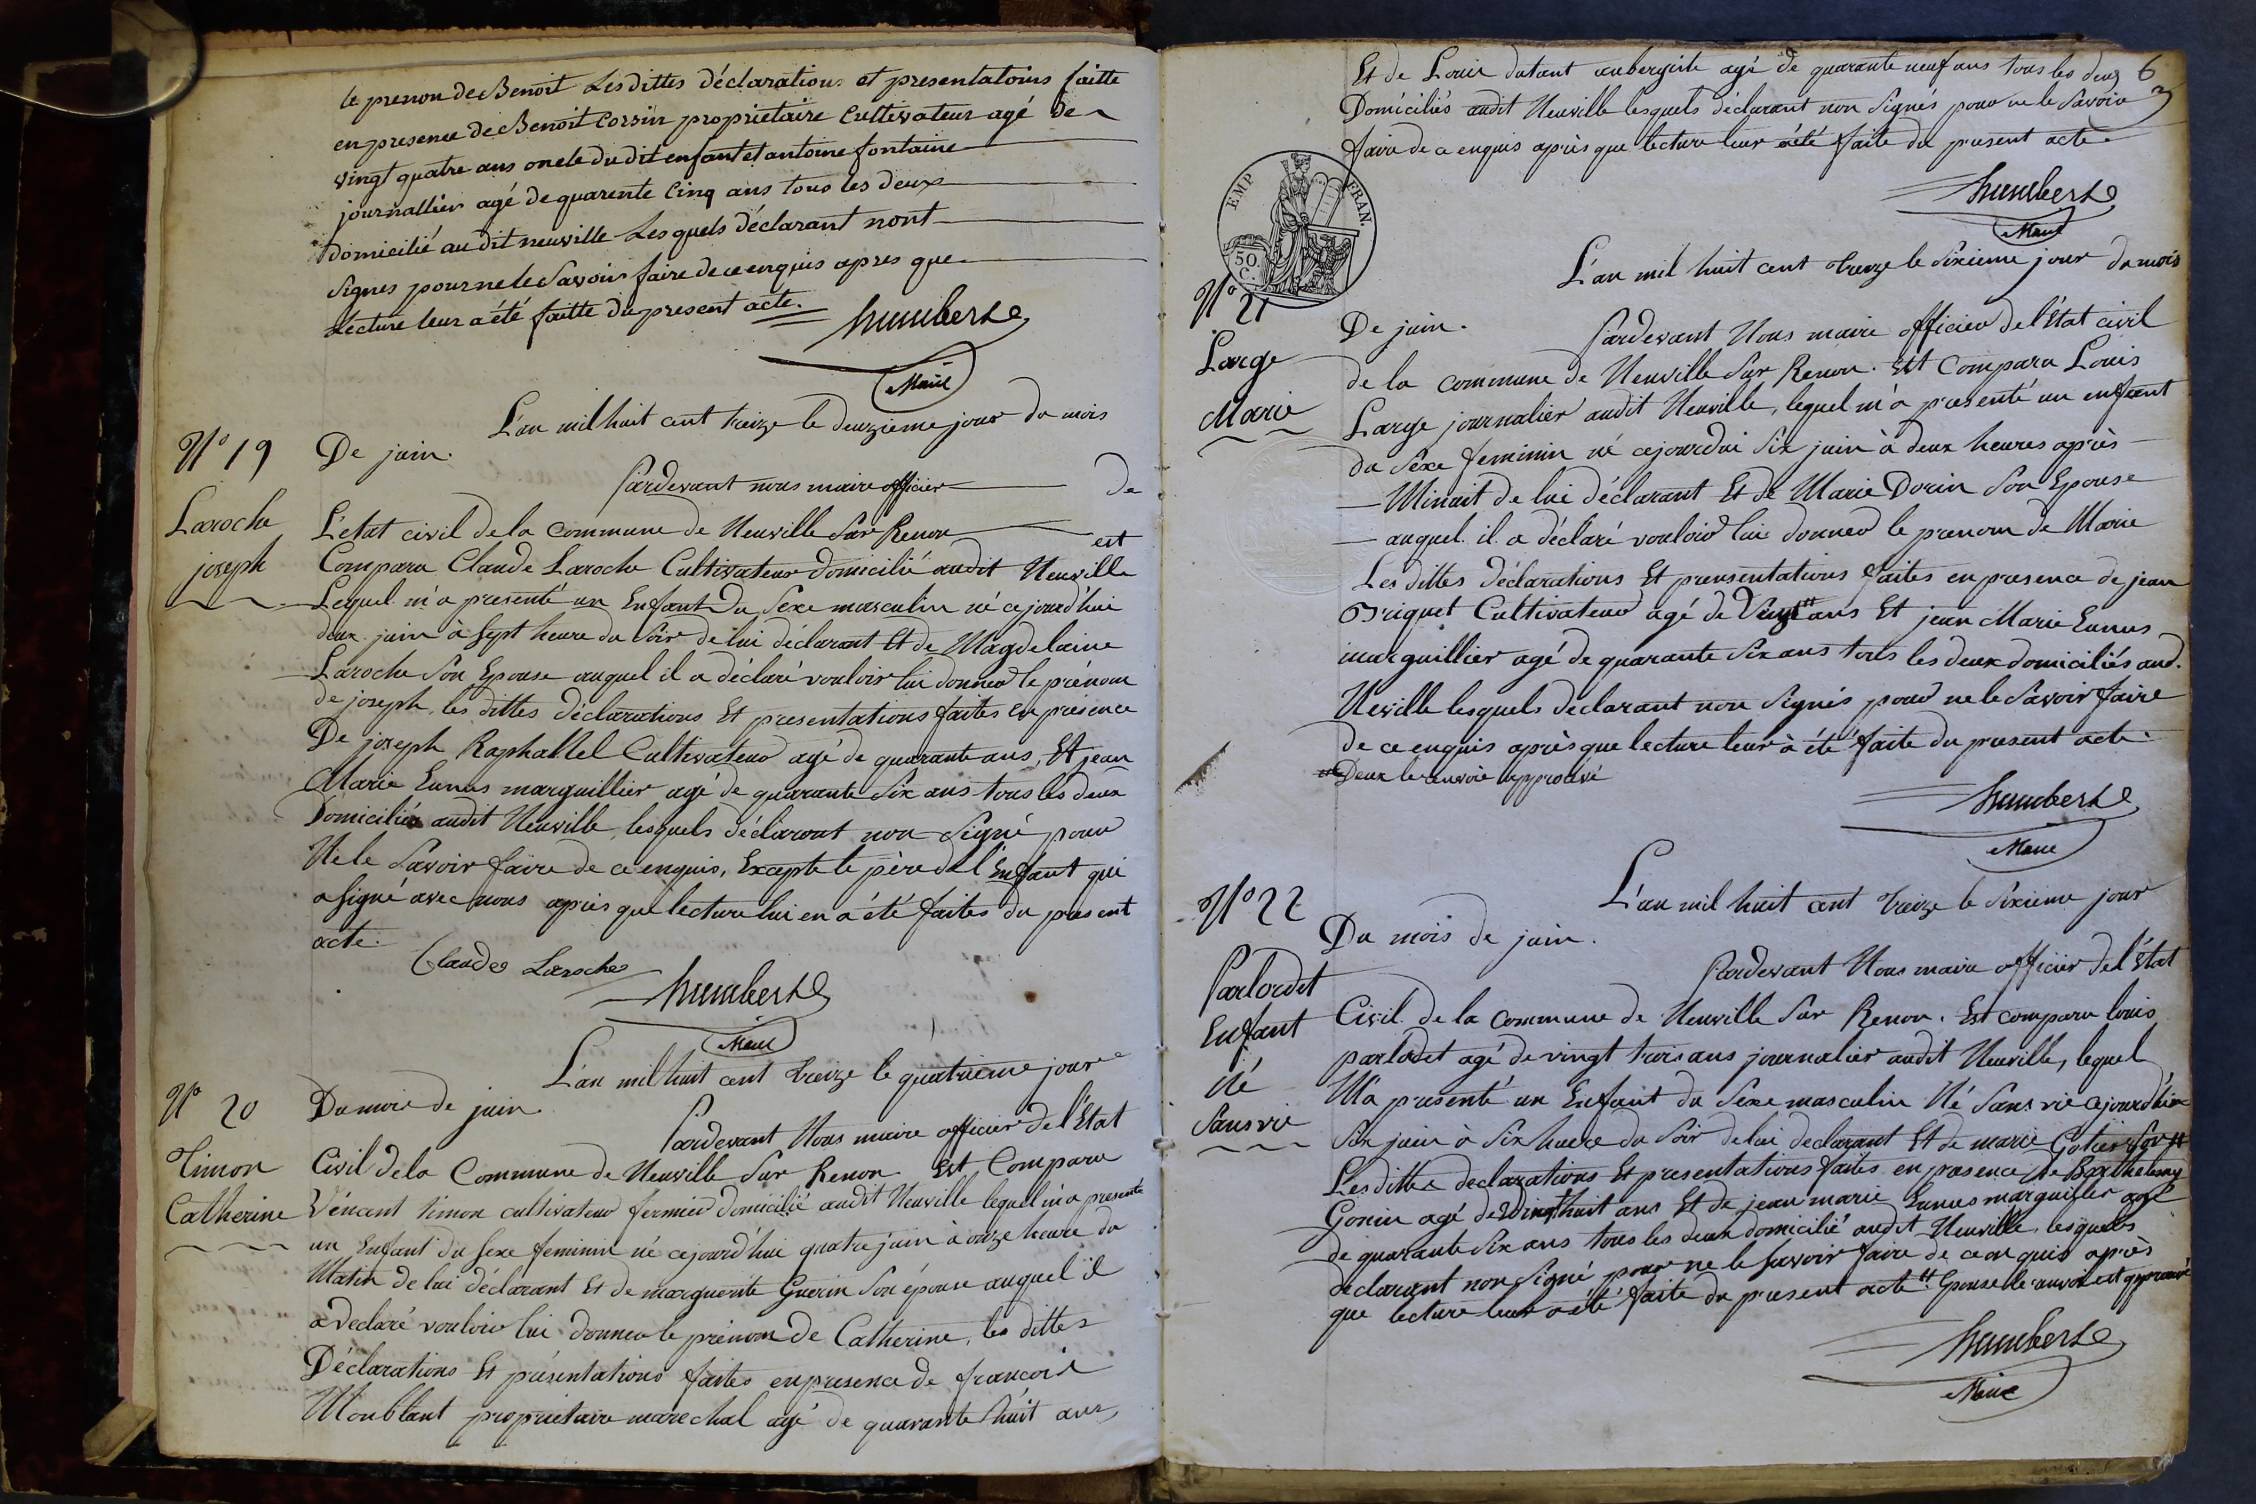 le prenon de Benoit Les dittes déclarations et presentatoins faitte
en presence de Benoit Corsin propriétaire Cultivateur agé de
vingt quatre ans oncle du dit enfant et antoine fontaine
journallier agé de quarente cinq ans tous les deux
domicilié au dit neuville Les quels déclarant nont
signes pour ne le Savoir faire de ce enquis apres que
Lecture leur a été faitte du present acte.
humbert
Maire
L'an mil huit cent treize le deuzieme jour du mois
N° 19
De juin.
Pardevant nous maire officier de
Laroche
L'état civil de la Commune de Neuville Sur Renon est
joseph
Comparu Claude Laroche Cultivateur domicilié audit Neuville
Lequel m'a presenté un Enfant Du Sexe masculin né cejourd'hui
deux juin à Sept heure du Soir de lui déclarant Et de Magdelaine
Laroche Son Epouse auquel il a déclaré vouloir lui donner le prénom
de joseph, les dittes déclarations Et presentations faites en présence
De joseph Raphallel Cultivateur agé de quarante ans, Et jean
Marie Eunus marguillier agé de quarante Six ans tous les deux
Domiciliés audit Neuville, lesquels déclarant non Signé pour
Ne le Savoir faire de ce enquis, Excepté le père de l'Enfant qui
a signé avec nous après que lecture lui en a été faites du present
acte.
Claude Laroche
humbert
Maire
L'an mil huit cent treize le quatrieme jour
N° 20
Du mois de juin.
Pardevant Nous maire officier de l'Etat
Timon
Civil de la Commune de Neuville Sur Renon Est Comparu
Catherine
Vincent timon cultivateur fermier domicilié audit Neuville lequel m'a presenté
un Enfant du Sexe feminin né cejourd'hui quatre juin à onze heure du
Matin de lui déclarant Et de marguerite Guerin Son épouse auquel il
a declaré vouloir lui donner le prénom de Catherine, les dittes
Déclarations Et présentations faites en presence de françois
Monblant propriétaire marechal agé de quarante huit ans,
Et de Louis dutant aubergiste agé de quarante neuf ans tous les deux 6
Domiciliés audit Neuville lesquels déclarant non Signés pour ne le Savoir
faire de ce enquis après que lecture leur a été faite du present acte.
humbert
Maire
EMP. FRAN.
50 C.
L'an mil huit cent treize le Sixieme jour du mois
N° 21
De juin.
Pardevant Nous maire officier de l'Etat civil
Large
de la commune de Neuville Sur Renon. Est Comparu Louis
Marie
Large journalier audit Neuville, lequel m'a presenté un enfent
du Sexe feminin né cejourdui Six juin à deux heures après
Minuit de lui déclarant Et de Marie Dorin Son Epouse
auquel il a déclaré vouloir lui donner le prenom de Marie
Les dittes déclarations Et prensentations faites en presence de jean
Briquet Cultivateur agé de Vingt ans Et jean Marie Eunus
marguillier agé de quarante Six ans tous les deux domiciliés aud.
Neville lesquels declarant non Signés pour ne le Savoir faire
de ce enquis après que lecture leur à été faite du present acte.
Deux le renvoie approuvé
humbert
Maire
L'an mil huit cent treize le Sixieme jour
N° 22
Du mois de juin.
Pardevant Nous maire officier de l'Etat
Parlordet
Civil de la Commune de Neuville Sur Renon. Est comparu louis
Enfant
parlodet agé de vingt trois ans journalier audit Neuville, lequel
né
M'a presenté un Enfant du Sexe masculin Né Sans vie cejourd'hui
Sans vie
Six juin à Six heure du Soir de lui declarant Et de marie Gotier Son
Les dittes declarations Et presentations faites en presence de Barthelemy
Gonin agé de Vingt huit ans Et de jean marie Eunus marguillier agé
de quarante Six ans tous les deux domicilié audit Neuville, lesquels
declarant non Signé pour ne le Savoir faire de ce enquis après
que lecture leur a été faite du present acte. Epouse le renvoi est approuvé
humbert
Maire